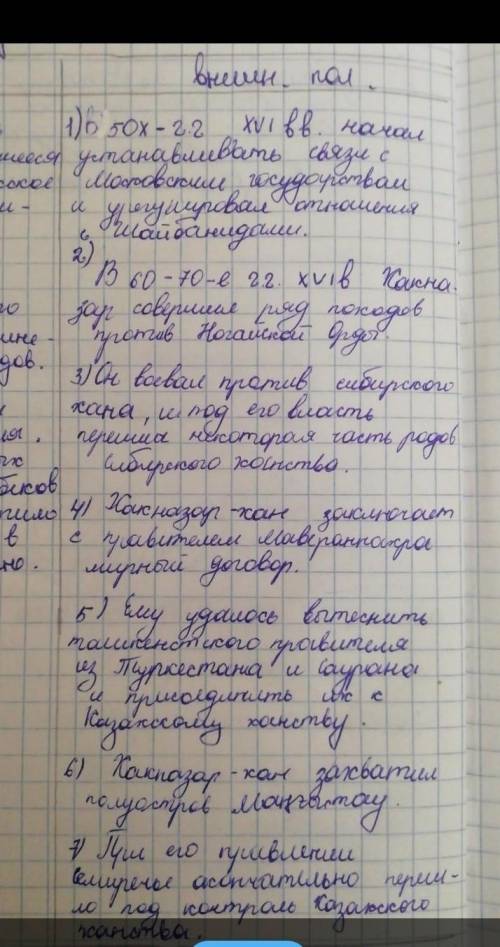 внешн. пол.
1) В 50х-г.г XVI в в. начал
шееся устанавливать связи с
ское Московским государством
и- и урегулировал отношения
с Шайбанидами.
2)
В 60-70-е г.г. XVI в Хакна-
го зар совершил ряд походов
ине- против Ногайской Орды.
дов.
3) Он воевал против сибирского
хана, и под его власть
ия. перешла некоторая часть родов
ых сибирского ханства.
беков
пило 4) Хакназар-хан заключает
в с правителем Мавераннахра
но. мирный договор.
5) Ему удалось вытеснить
ташкентского правителя
из Туркестана и Саурана
и присоединить их к
Казахскому ханству.
6) Хакназар-хан захватил
полуостров Маңғыстау.
7) При его правлении
Семиречье окончательно переш-
ло под контроль Казахского
ханства.